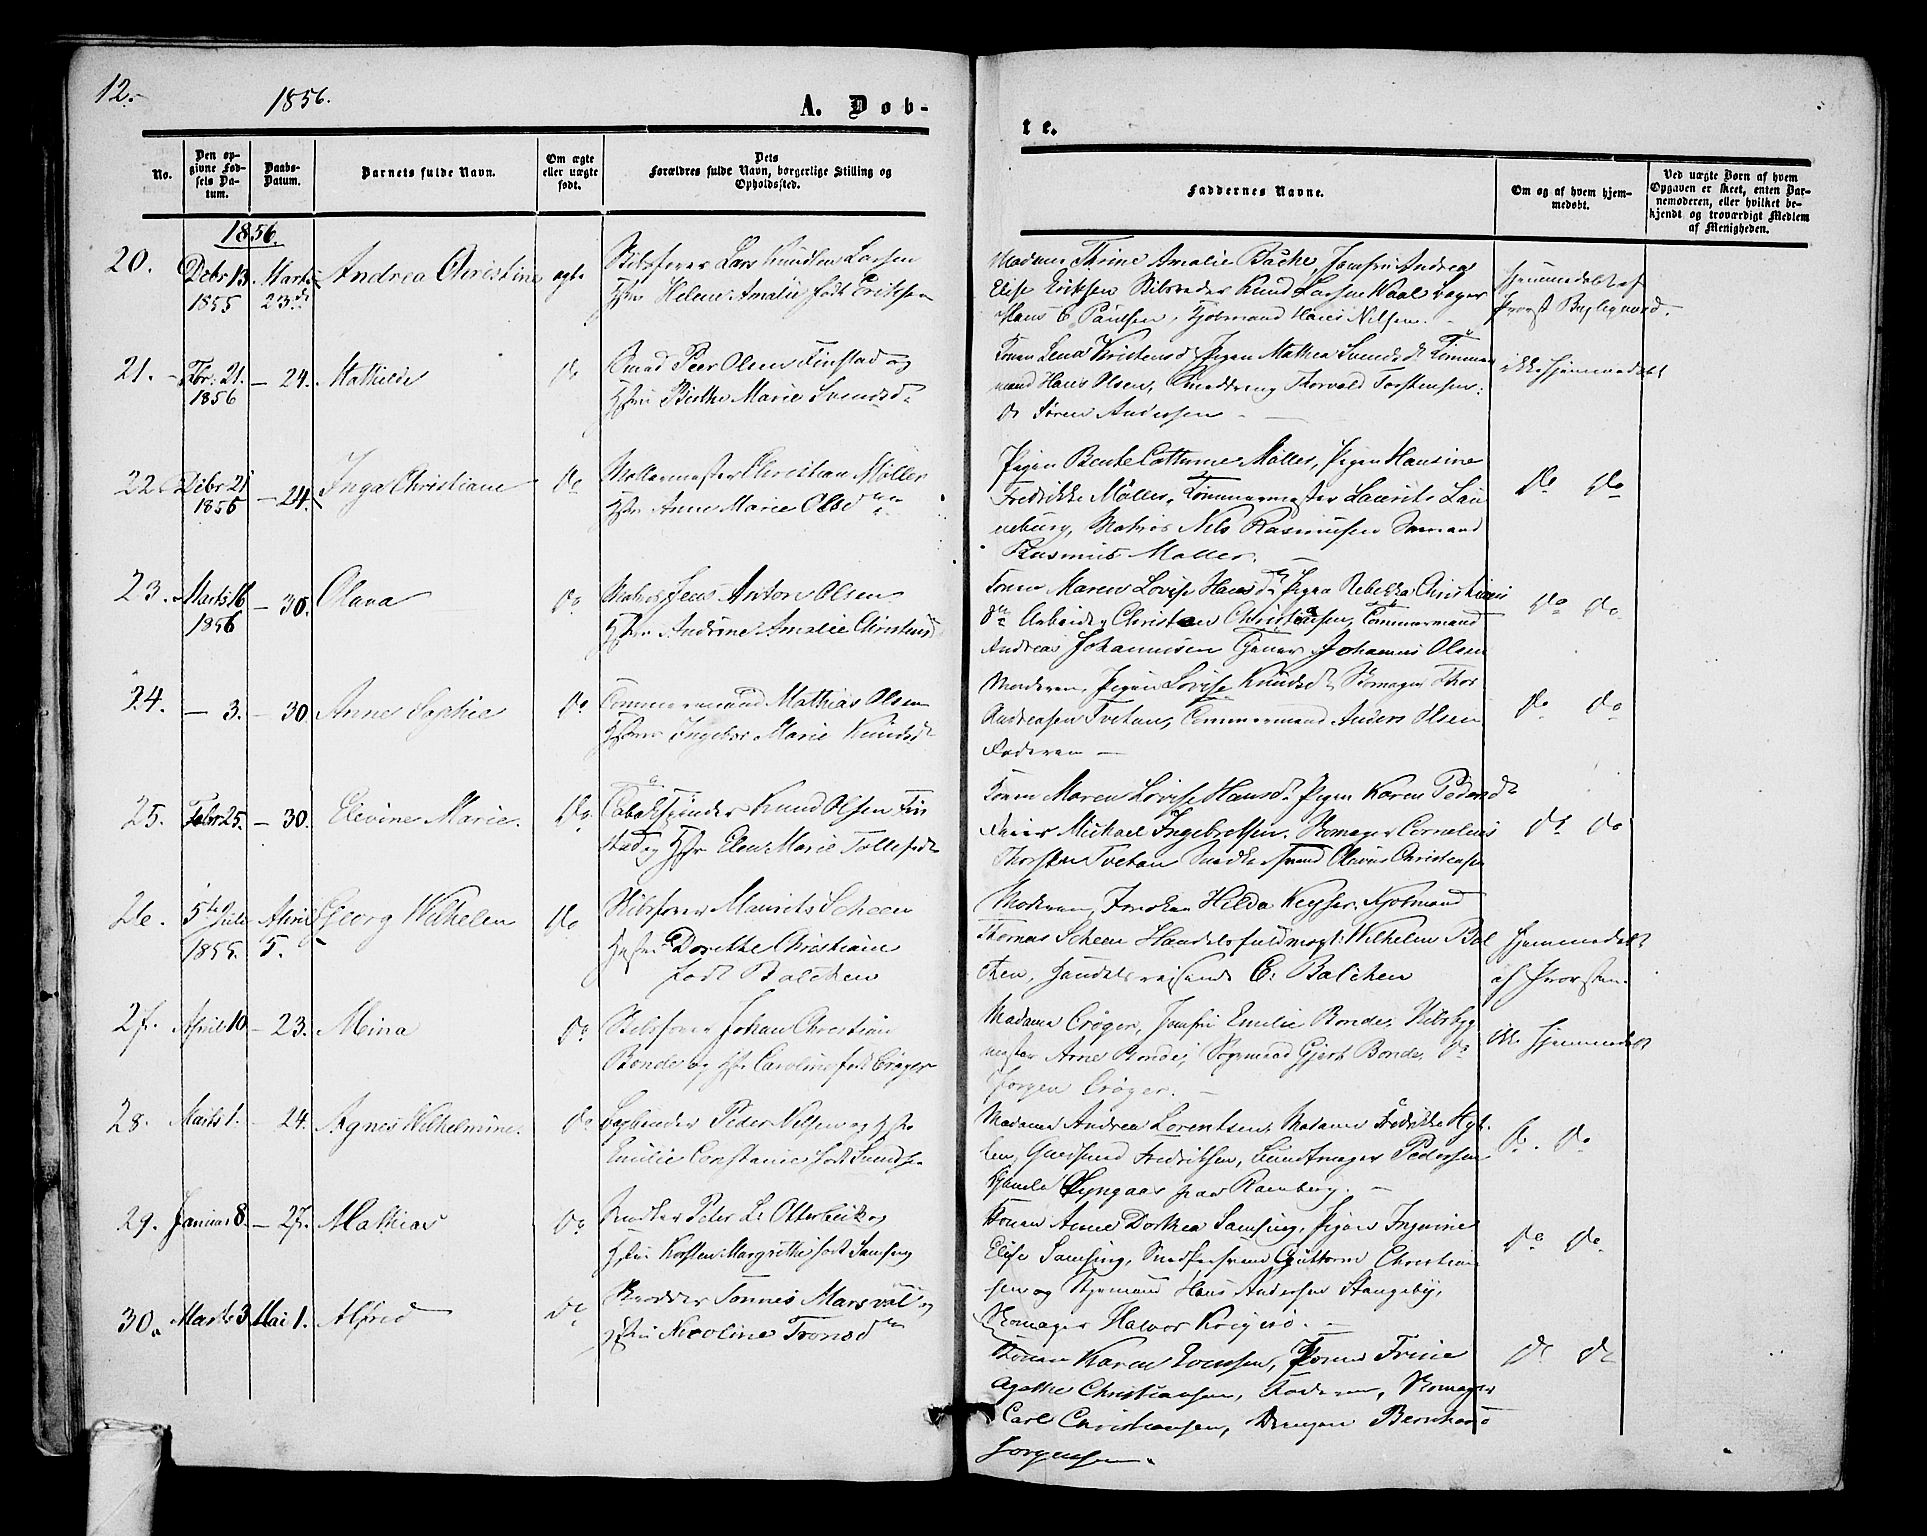 12.
1856.
A. Døb-
te.
No.
Den op-
givne Fød-
sels Da-
tum.
Daabs-
Datum.
Barnets fulde Navn.
Om ægte
eller uægte
født.
Dets
Forældres fulde Navn, borgerlige Stilling og
Opholdssted.
Faddernes Navne.
Om og af hvem hjem-
medøbt.
Ved uægte Børn af hvem
Opgaven er skeet, enten Bar-
nemoderen, eller hvilket be-
kjendt og troværdigt Medlem
af Menigheden.
1856.
20. Debr 13. 1855 Marts 23 Andrea Christine ægte
Skibsfører Lars Knudsen Larsen
Hstr Helene Amalie født Eriksen
Madame Thrine Amalie Bache, Jomfru Andrea
Elise Eriksen Skibsreder Knud Larsen Waal
Hans C. Paulsen, Kjøbmand Hans Nilsen.
Hjemmedøbt af
Provst
21. Fbr. 21. 1856 - 24. Mathilde do
Peer Olsen Finstad og
Hstru Birthe Marie Svendsd.
Konen Lena Kristensd Pigen Mathea Svendsd. Tømmer
mand Hans Olsen, Thorvald Torstensen
do Søren Andersen
ikke hjemmedøbt
22. Debr 21 1856 - 24. Inga Christiane do
Christian Møller
Hstr Anne Marie Olsd
Pigen Bente Cathrine Møller, Pigen Hansine
Fredrikke Møller, Tømmermester Laurits Lau
neburg, Matros Nils Rasmussen Sømand
Rasmus Møller.
do do
23. Marts 16 1856 - 30. Olava do
Matros Jens Anton Olsen
Hstru Andrine Amalie Christensd
Konen Maren Lovise Hansd. Pigen Rebekka Christians
dtr Arbeider Christen Christensen, Tømmermand
Andreas Johannisen Tjener Johannes Olsen
do do
24. - 3. - 30. Anne Sophie do
Tømmermand Mathias Olsen
Hstru Ingebor Marie Knudsd
Moderen, Pigen Lovise Knudsd. Skomager Thor
Andreasen Tvetan, Tømmermand Anders Olsen
Faderen
do do
25. Febr 25. - 30. Elevine Marie. do
Tobakspinder Knud Olsen Fin
stad og Hstr Elen Marie Tollefsd
Konen Maren Lovise Hansd. Pigen Karen Pedersd
Michael Ingebretsen, Skomager Cornelius
Thorsten Tvetan Olavus Christensen
do do
26. 5te Juli 1855. April 5. Georg Wilhelm do
Skibsfører Maurits Scheen
Hustr. Dorothe Christiane
født Balchen
Moderen, Frøken Hilda Keyser, Kjøbmand
Thomas Scheen Handelsfuldmægt: Wilhelm Bal
chen, Handelsreisende C. Balchen
Hjemmedøbt
af Provsten.
27. April 10 - 23. Mina do
Skibsfører Johan Christian
Bonde og Hstr Caroline født Crøger
Madame Crøger, Jomfru Emilie Bonde, Skibsbyg
mester Arne Bonde, Sømand Gjert Bonde, do
Jørgen Crøger.
ikke hjemmedøbt
28. Marts 1. - 24. Agnes Wilhelmine. do
Bogbinder Peder Nilsen og Hstr
Emilie Constance født
Madame Andrea Lorentsen, Madame Fredrikke
Fredriksen, Buntmager Pedersen
do. do
29. Januar 8. - 27. Mathias do
Peter L. Otterbeck og
Hstru Kirsten Margrethe født Samsing
Konen Anne Dorthea Samsing, Pigen Ingvine
Elise Samsing, Guttorm Christian
sen og Hans Andersen Stangeby,
Skomager Halvor Krigerø.
do do.
30. Marts 3 Mai 1. Alfred do
Tønnes Marsvål og
Hstru Nicoline Tronsd
Konen Karen Evensen, Trine
Agathe Christiansen, Faderen, Skomager
Carl Christiansen, Drengen Bernhard
Jørgensen.
do do